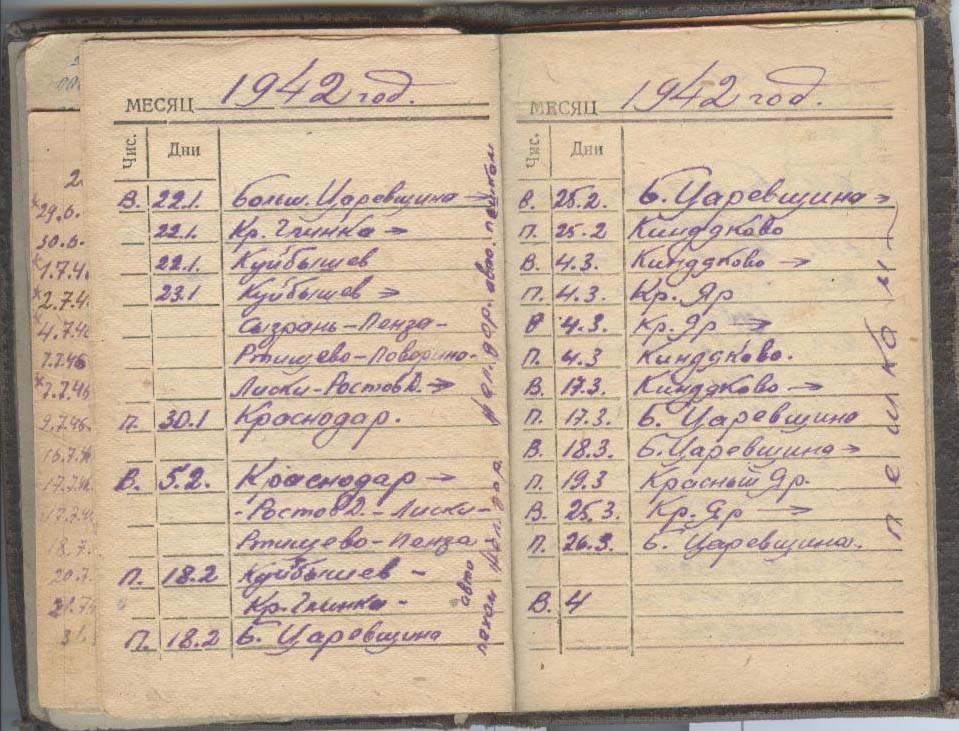 МЕСЯЦ 1942 год.
Чис. Дни
В. 22.1. Больш. Царевщина →
22.1. Кр. Глинка →
22.1. Куйбышев
23.1 Куйбышев →
Сызрань-Пенза-
Ртищево-Поворино-
Лиски-Ростов Д. →
П. 30.1 Краснодар.
В. 5.2. Краснодар →
-Ростов Д.-Лиски-
Ртищево-Пенза
П. 18.2 Куйбышев -
Кр. Глинка -
П. 18.2 Б. Царевщина
Жел. дор. авто. пешком
авто жел. дор.
пехом
МЕСЯЦ 1942 год.
Чис. Дни
В. 25.2. Б. Царевщина →
П. 25.2 Киндяково
В. 4.3. Киндяково →
П. 4.3. Кр. Яр
В 4.3. Кр. Яр →
П. 4.3 Киндяково.
В. 17.3 Киндяково →
П. 17.3. Б. Царевщина
В. 18.3 Б. Царевщина →
П. 19.3 Красный Яр.
В. 25.3. Кр. Яр →
П. 26.3. Б. Царевщина.
В. 4
пешком
29.6.
30.6.
1.7.46
2.7.4
4.7.46
7.7.46
7.7.46
9.7.46.
17.7.46
18.7.
20.7.